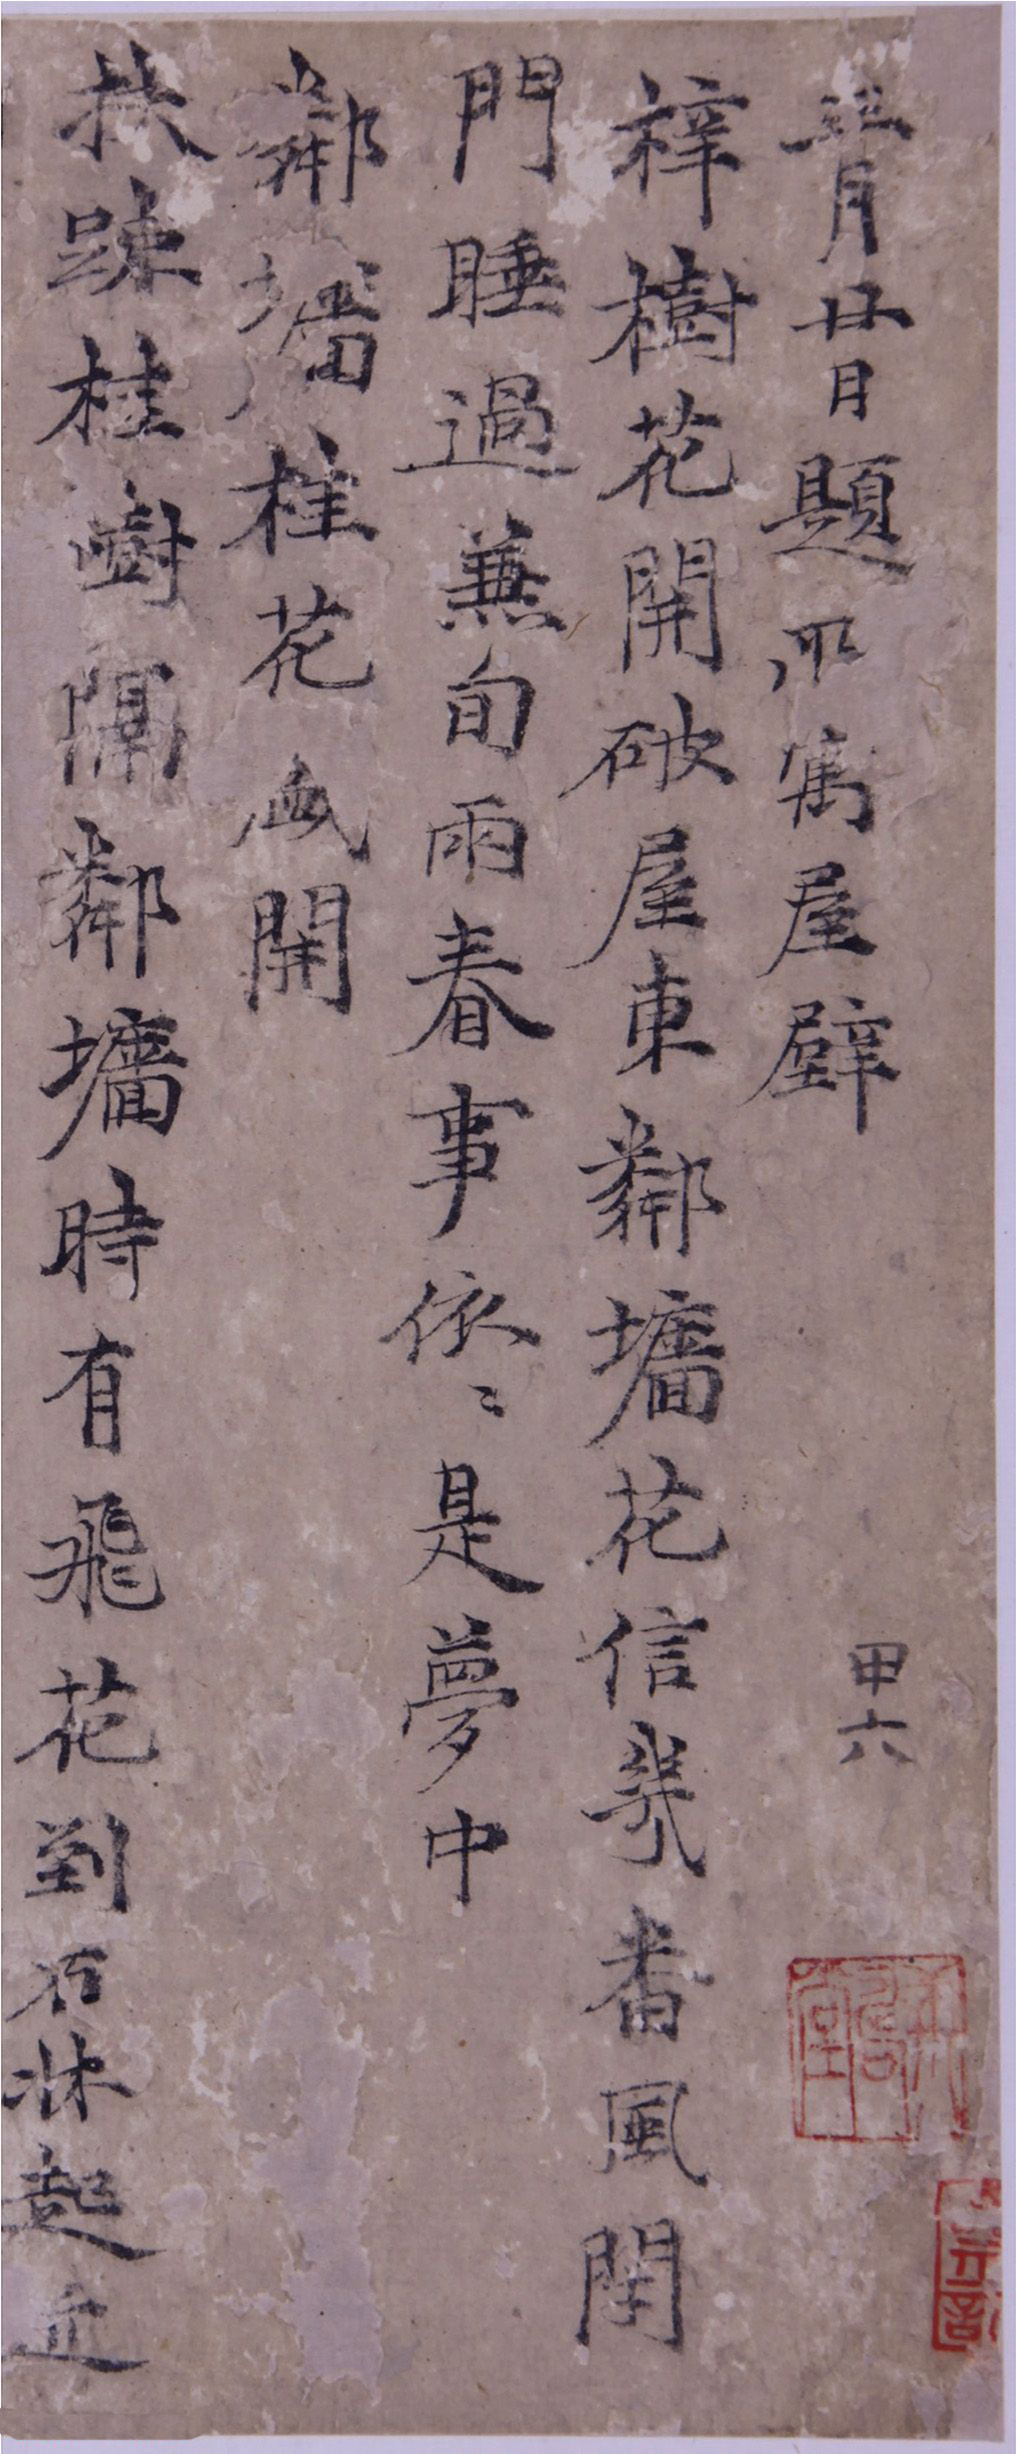 月廿日題所寓屋壁
甲六
梓樹花開破屋東鄰墻花信幾番風閇
門睡過蒹旬雨春事依〻是夢中
鄰墻桂花盛開
扶踈桂樹隔鄰墻時有飛花到石牀起近